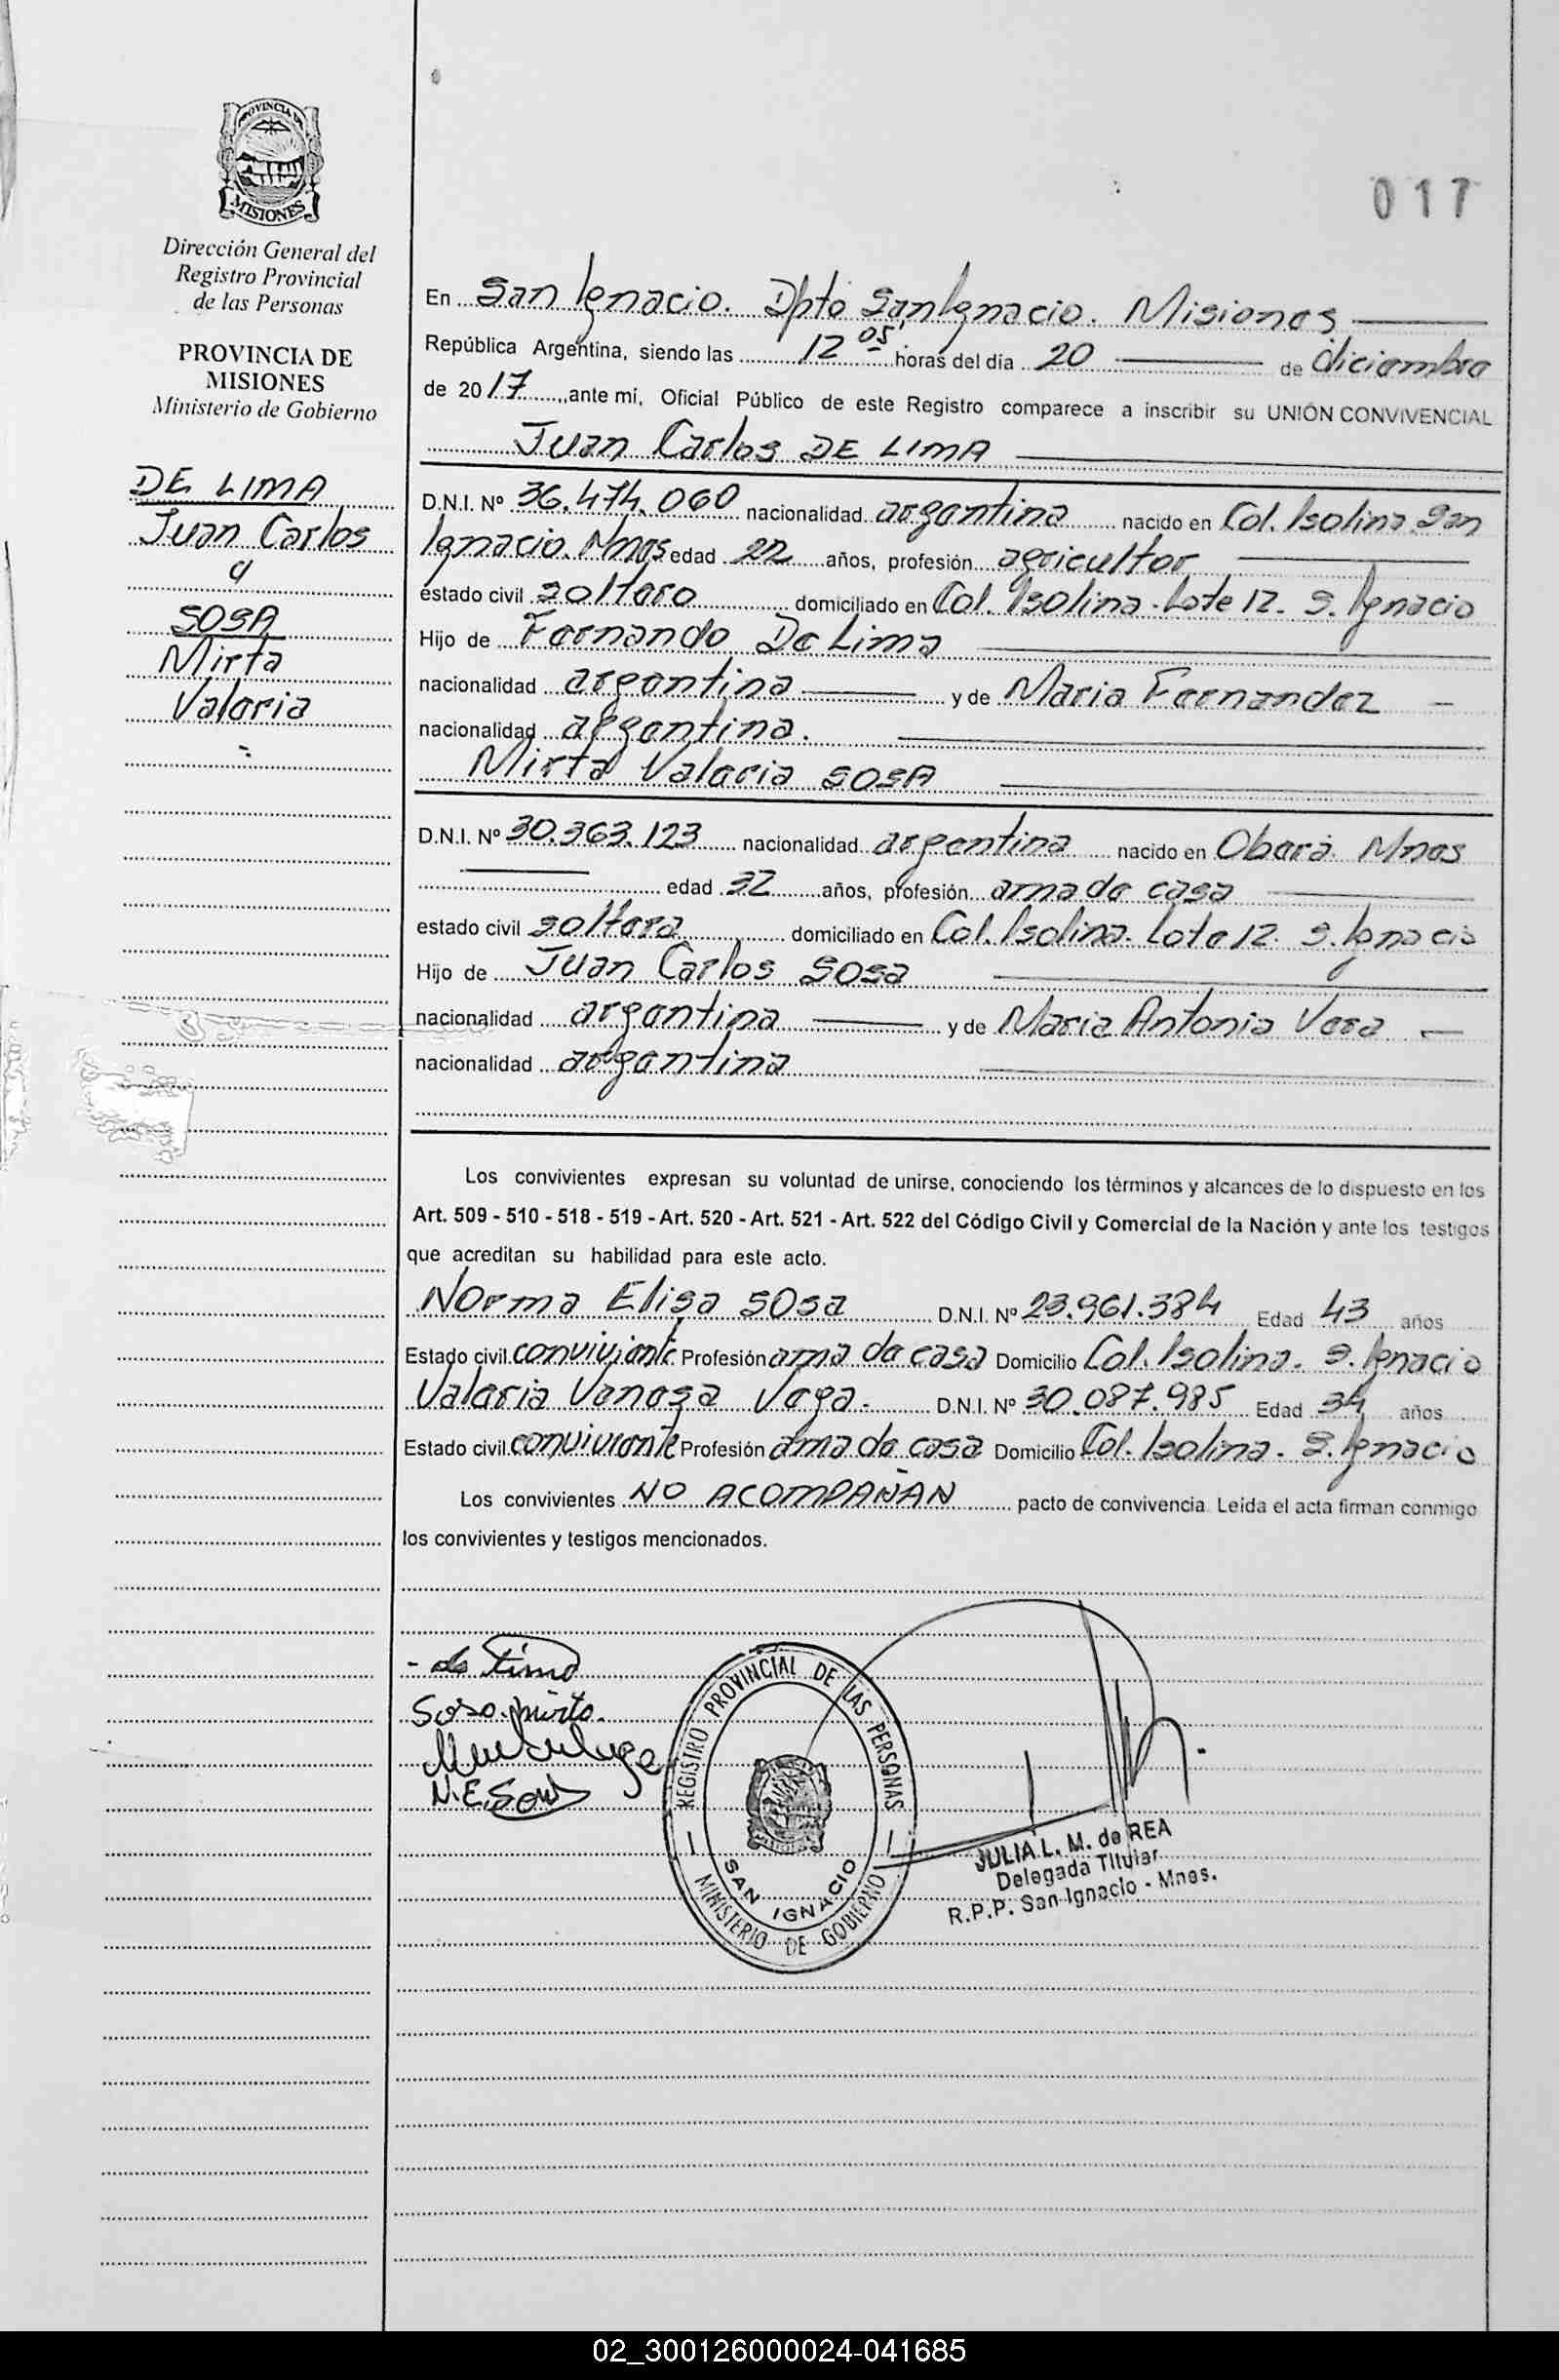 PROVINCIA DE
MISIONES
Dirección General del
Registro Provincial
de las Personas
PROVINCIA DE
MISIONES
Ministerio de Gobierno
DE LIMA
Juan Carlos
y
SOSA
Mirta
Valeria
017
En San Ignacio. Dpto San Ignacio. Misiones
República Argentina, siendo las 12 05' horas del día 20 de diciembre
de 2017, ante mí, Oficial Público de este Registro comparece a inscribir su UNIÓN CONVIVENCIAL
Juan Carlos DE LIMA
D.N.I. Nº 36.474.060 nacionalidad argentina nacido en Col. Isolina San
Ignacio. Mnes edad 22 años, profesión agricultor
estado civil soltero domiciliado en Col. Isolina. Lote 12. S. Ignacio
Hijo de Fernando De Lima
nacionalidad argentina y de Maria Fernandez
nacionalidad argentina.
Mirta Valeria SOSA
D.N.I. Nº 30.363.123 nacionalidad argentina nacido en Oberá. Mnes
edad 32 años, profesión ama de casa
estado civil soltera domiciliado en Col. Isolina. Lote 12. S. Ignacio
Hijo de Juan Carlos SOSA
nacionalidad argentina y de Maria Antonia Vera
nacionalidad argentina
Los convivientes expresan su voluntad de unirse, conociendo los términos y alcances de lo dispuesto en los
Art. 509 - 510 - 518 - 519 - Art. 520 - Art. 521 - Art. 522 del Código Civil y Comercial de la Nación y ante los testigos
que acreditan su habilidad para este acto.
Norma Elisa SOSA D.N.I. Nº 23.961.384 Edad 43 años
Estado civil conviviente Profesión ama de casa Domicilio Col. Isolina. S. Ignacio
Valeria Vanesa Vega. D.N.I. Nº 30.087.985 Edad 34 años
Estado civil conviviente Profesión ama de casa Domicilio Col. Isolina. S. Ignacio
Los convivientes NO ACOMPAÑAN pacto de convivencia. Leída el acta firman conmigo
los convivientes y testigos mencionados.
- de Lima
Sosa mirta.
N.E. Sosa
REGISTRO PROVINCIAL DE LAS PERSONAS
SAN IGNACIO
MINISTERIO DE GOBIERNO
JULIA L. M. de REA
Delegada Titular
R.P.P. San Ignacio - Mnes.
02_300126000024-041685